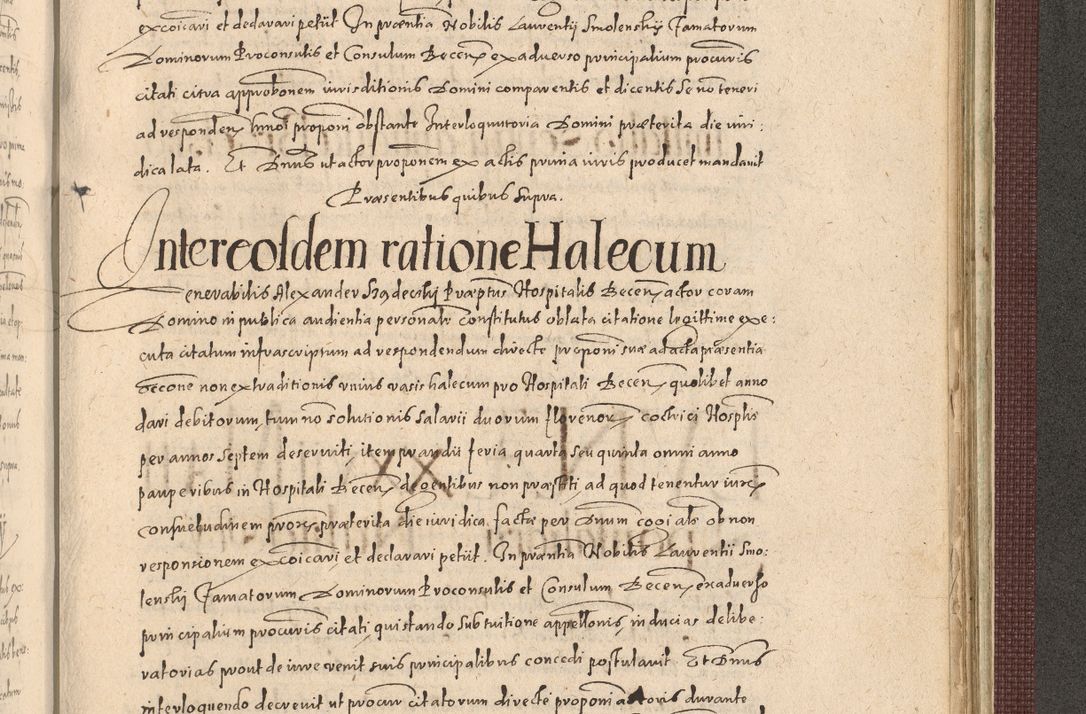 excoicari et declarari petiit In prntia Nobilis Laurentii Smolenskij Famatorum
Dominorum Proconsulis et Consulum Becen ex adverso principalium procuris
citati citra approbonem iurisditionis Domini comparentis et dicentis se no teneri
ad responden hmoi proponi obstante Interloqutoria Domini præterita die iuri:
dica lata. Et Dnus ut actor proponem ex actis prima iuris producet mandavit
Præsentibus quibus supra.
Inter eosdem ratione Halecum
Venerabilis Alexander Szadecskij Præptus Hospitalis Becen actor coram
Domino in publica audientia personalr constitutus oblata citatione legittime exe:
cuta citatum infrascriptum ad respondendum directe proponi suæ ad acta præsentia
oecone non extraditionis unius vasis halecum pro Hospitali Becen quolibet anno
dari debitorum, tum no solutionis salarii duorum florenor coctrici Hosplis
per annos septem deserviti, item prandii feria quarta seu quinta omni anno
pauperibus in Hospitali Becen degentibus non præstiti ad quod tenentur iuxta
consuetudinem prout præterita die iuridica facta per Dnum cogi als ob non
responsionem excoicari et declarari petiit. In prntia Nobilis Laurentii Smo:
lenskij Famatorum Dominorum Proconsulis et Consulum Becen ex adverso
principalium procuris citati, qui stando sub tuitione appellonis, inducias delibe:
ratorias prout de iure venit suis principalibus concedi postulavit Et Dnus
interloquendo decrevit ut procur citatorum directe proponi actoris durante